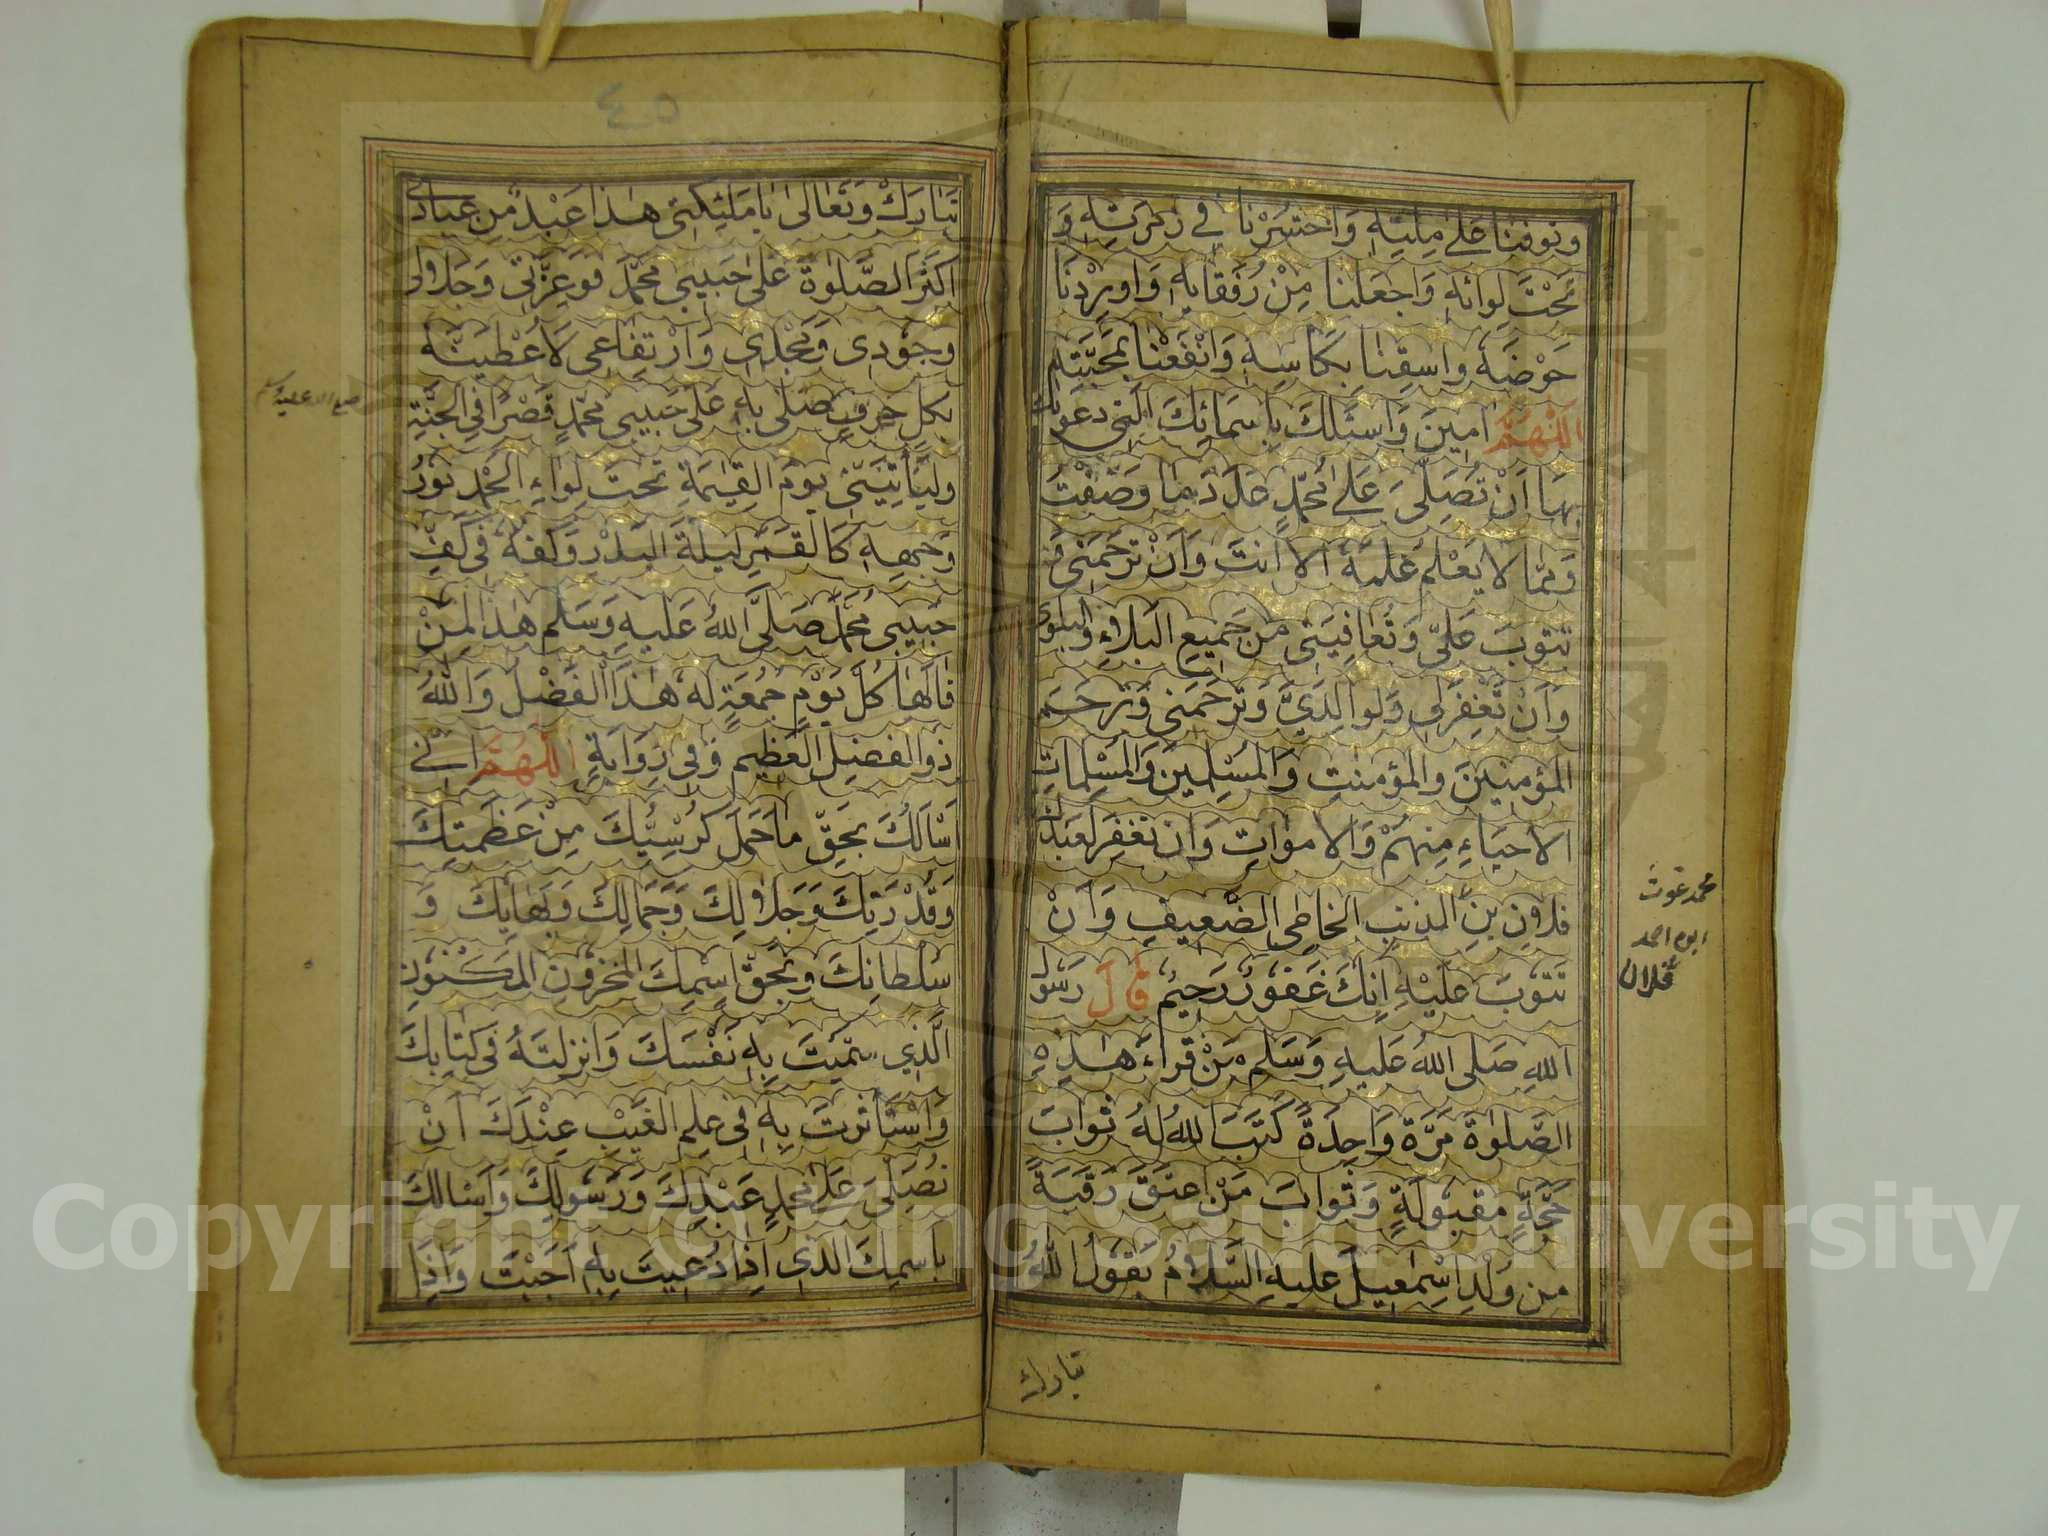 وتوفنا على ملته واحشرنا في زمرته و
تحت لوائه واجعلنا من رفقايه واوردنا
حوضه واسقنا بكاسه وانفعنا بمحبته
اللهم امين واسئلك باسمائك التي دعوتك
بها ان تصلي على محمد عدد ما وصفت
ومما لا يعلم علمه الا انت وان ترحمني و
تتوب علي وتعافيني من جميع البلاء والبلوى
وان تغفر لي ولوالدي وترحمني وترحم
المؤمنين والمؤمنت والمسلمين والمسلمات
الاحياء منهم والاموات وان تغفر لعبدك
فلان بن المذنب الخاطي الضعيف وان
تتوب عليه انك غفور رحيم قال رسول
الله صلى الله عليه وسلم من قراء هذه
الصلوة مرة واحدة كتب الله له ثواب
حجة مقبولة وثواب من اعتق رقبة
من ولد اسمعيل عليه السلام يقول الله
تبارك
محمد غوث
احمد
فلان
٤٥
تبارك وتعالى يا ملئكتي هذا عبد من عبادي
اكثر الصلوة على حبيبي محمد فوعزتي وجلالي
وجودي ومجدي وارتفاعي لاعطينه
بكل حرف صلى به على حبيبي محمد قصرا في الجنة
ولياتيني يوم القيمة تحت لواء الحمد نور
وجهه كالقمر ليلة البدر وكفه في كف
حبيبي محمد صلى الله عليه وسلم هذا لمن
قالها كل يوم جمعة له هذا الفضل والله
ذو الفضل العظيم وفي رواية اللهم اني
اسالك بحق ما حمل كرسيك من عظمتك
وقدرتك وجلالك وجمالك وبهايك و
سلطانك وبحق اسمك المخزون المكنون
الذي سميت به نفسك وانزلته في كتابك
واستاثرت به في علم الغيب عندك ان
تصلي على محمد عبدك ورسولك واسالك
باسمك الذي اذا دعيت به اجبت واذا
صلى الله عليه وسلم
Copyright © King Saud University